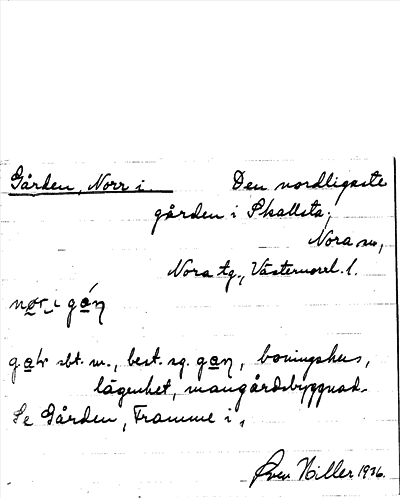 Gården, Norr i. Den nordligaste
gården i Skallsta,
Nora sn,
Nora tg., Västernorrl. l.
nør i gán
gaɽ sbt. m., best. sg. gan, boningshus,
lägenhet, mangårdsbyggnad.
Se Gården, Framme i,
Hiller 1936.